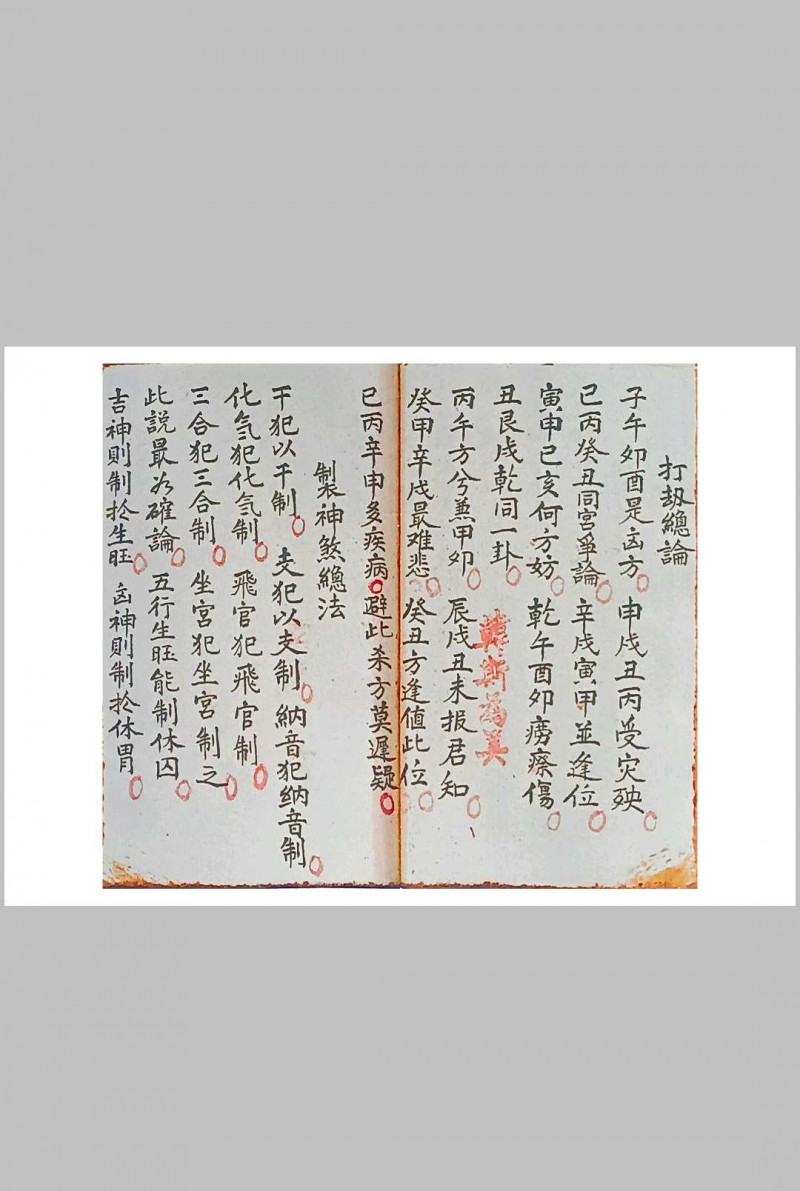 打刼總論
子午卯酉是凶方 申戌丑丙受灾殃
己丙癸丑同宮爭論 辛戌寅甲並逢位
寅申巳亥何方妨 乾午酉卯癆瘵傷
丑艮戌乾同一卦
丙午方兮兼甲卯 辰戌丑未报君知
癸甲辛戌最难悲 癸丑方逢值此位
巳丙辛申多疾病 避此杀方莫遲疑
製神煞總法
干犯以干制 支犯以支制 納音犯纳音制
化気犯化気制 飛官犯飛官制
三合犯三合制 坐宮犯坐宮制之
此説最为確論 五行生旺能制休囚
吉神則制扵生旺 凶神則制扵休胃